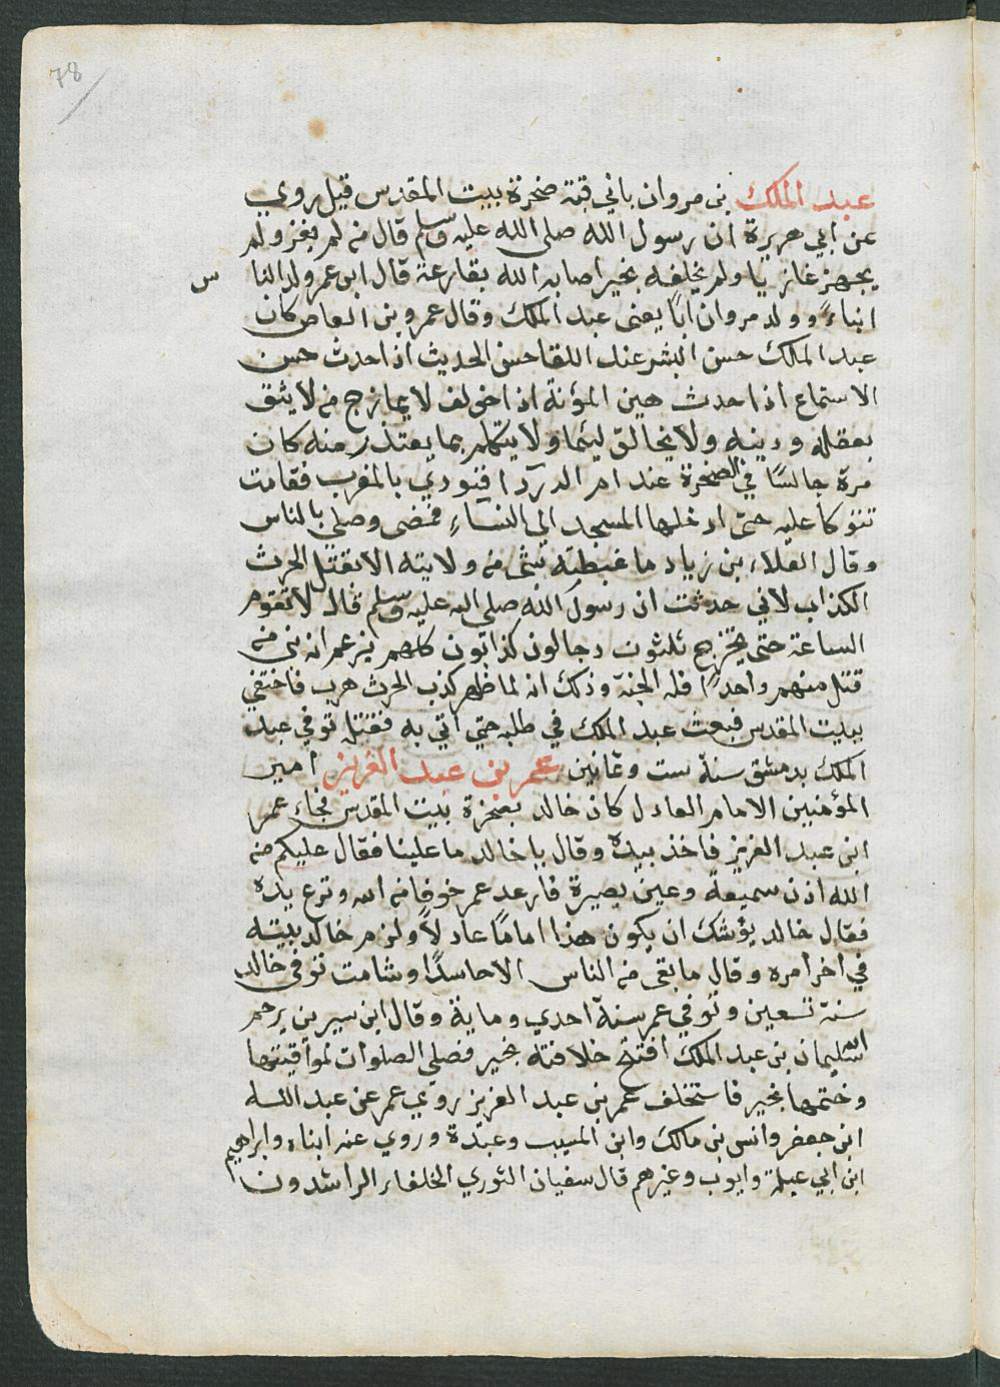 78
عبد الملك بن مروان باني قبة صخرة ببيت المقدس قيل روي
عن ابي هريرة ان رسول الله صلى الله عليه وسلم قال من لم يغزو لم
يجهز غازيا ولم يخلفه بخير اصابه الله بقارعة قال ابن عمر ولد النا س
ابناءً وولد مروان ابًا يعني عبد الملك وقال عمرو بن العاص كان
عبد الملك حسن البشر عند اللقا حسن الحديث اذا حدث حسن
الاستماع اذا حدث هين المؤنة اذا خولف لا يمازح من لا يثق
بعقله ودينه ولا يخالق ليئما ولا يتكلم بما يعتذر منه كان
مرة جالسًا في الصخرة عند ام الدردا فنودي بالمغرب فقامت
تتوكا عليه حتى ادخلها المسجد الي النساءِ فمضى وصلي بالناس
وقال العلاء بن زياد ما غبطته بشى من ولايته الا بقتل الحرث
الكذاب لاني حدثت ان رسول الله صلى الله عليه وسلم قال لا تقوم
الساعة حتى يخرج ثلثون دجالون كذابون كلهم يزعم انه نبي من
قتل منهم واحدًا فله الجنة وذلك انه لما ظهر كذب الحرث هرب فاختفي
ببيت المقدس فبعث عبد الملك في طلبه حتي اتي به فقتل توفي عبد
الملك بدمشق سنة ست وثمانين عمر بن عبد العزيز امير
المؤمنين الامام العادل كان خالد بصخرة بيت المقدس فجاء عمر
ابن عبد العزيز فاخذ بيده وقال يا خالد ما علينا فقال عليكم من
الله اذن سميعة وعين بصيرة فارعد عمر خوفا من الله ونزع يده
فقال خالد يؤشك ان يكون هذا امامًا عادلاً ولزم خالد بيته
في اخر امره وقال ما بقى من الناس الا حاسدًا وشامت توفى خالد
سنة تسعين وتوفي عمر سنة احدي وماية وقال ابن سيرين يرحم
الله سليمان بن عبد الملك افتتح خلافته بخير فصلي الصلوات لمواقيتها
وختمها بخير فاستخلف عمر بن عبد العزيز روي عمر عن عبد الله
ابن جعفر وانس بن مالك وابن المسيب وعبدة وروي عنه ابناه وابراهيم
ابن ابي عبلة وايوب وغيرهم قال سفيان الثوري الخلفاء الراشدون